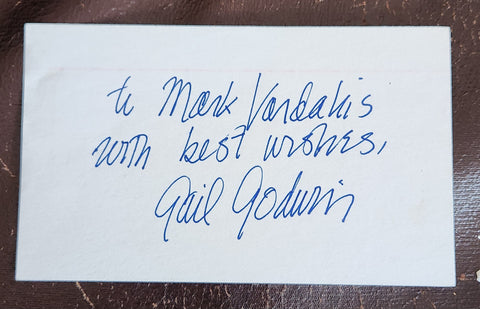 to Mark Vardakis
with best wishes,
Gail Godwin